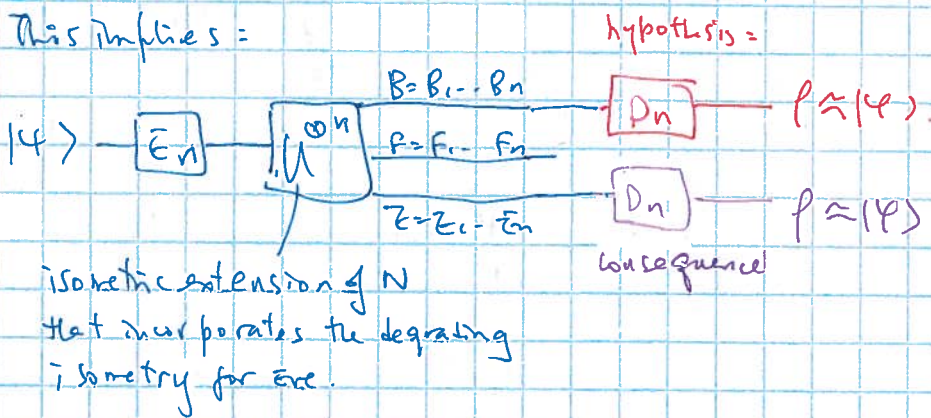 This implies:
hypothesis:
|ψ⟩ En U⊗n B=B1...Bn Dn ρ≈|φ⟩.
F=F1... Fn
E=E1... En Dn ρ≈|φ⟩
consequence
isometric extension of N
that incorporates the degrading
isometry for Eve.